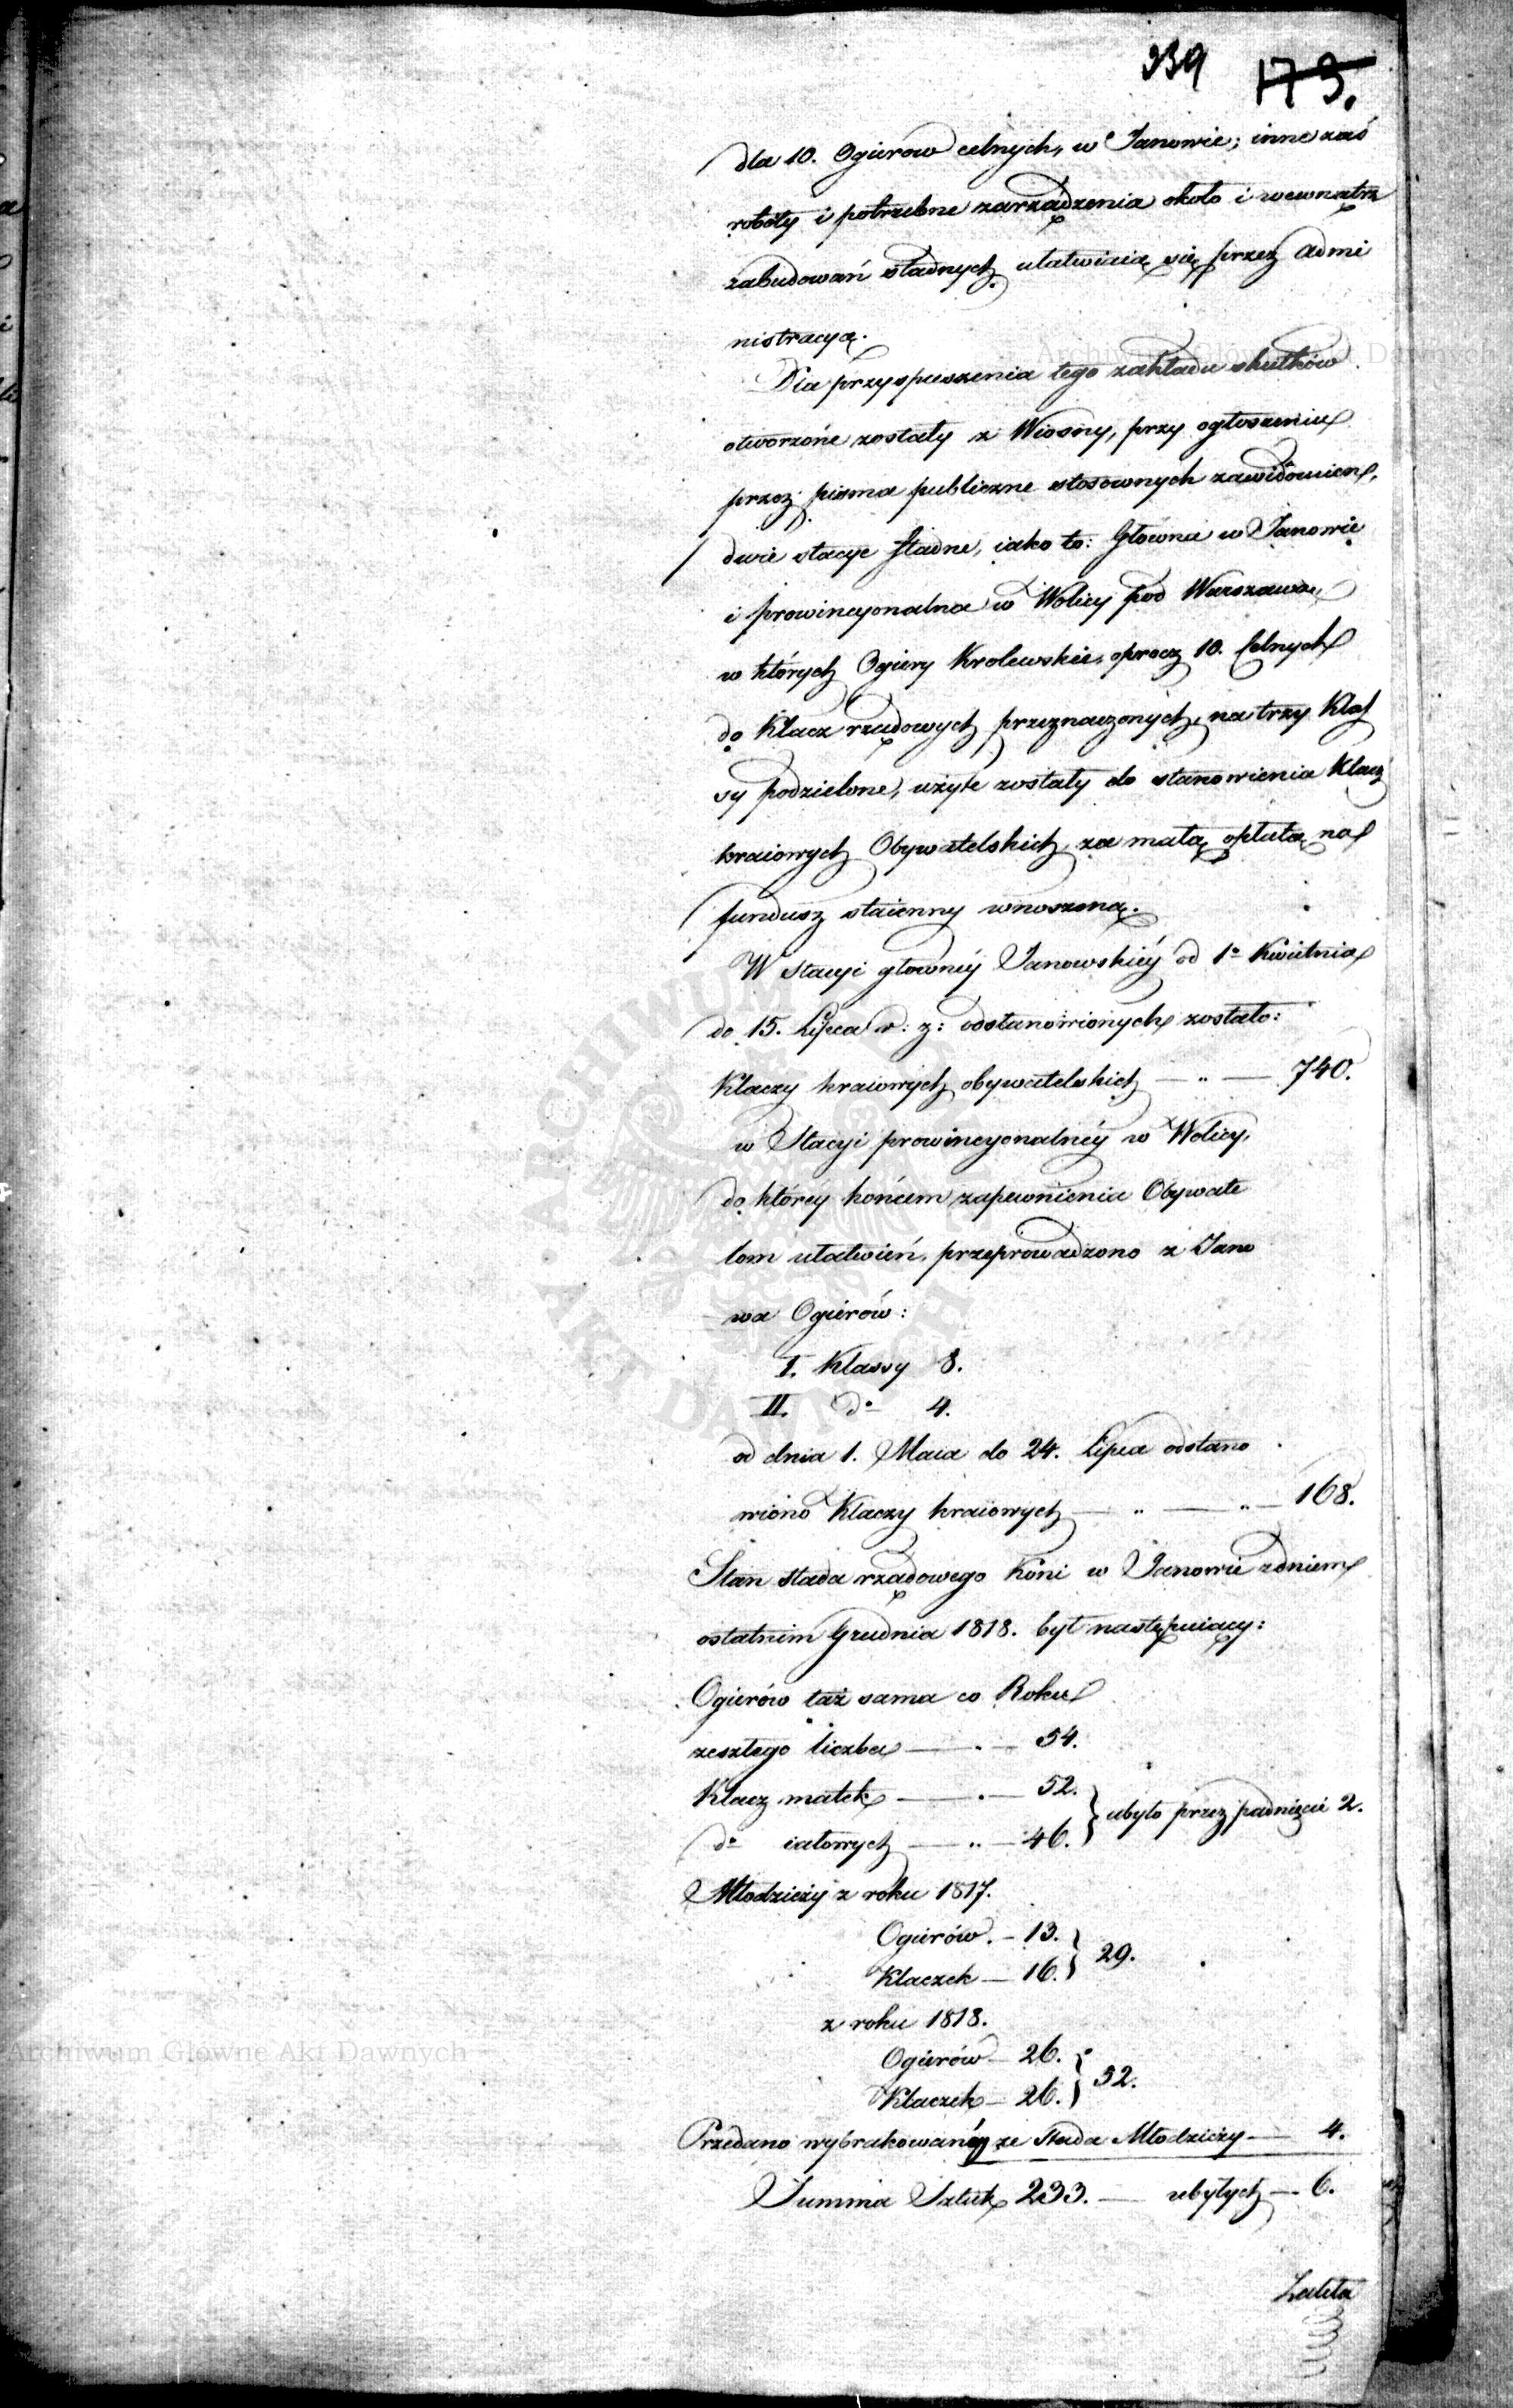 339 173.
dla 10. Ogierow celnych, w Janowie; inne zaś
roboty i potrzebne zarządzenia około i wewnątrz
zabudowań stadnych, ułatwiaią się przez Admi
nistracyą.
Dla przyspieszenia tego zakładu skutków
otworzone zostały z Wiosny, przy ogłoszeniu
przez pisma publiczne stosownych zawiadomień,
dwie stacye stadne, iako to: Główna w Janowie
i prowincyonalna w Wolicy pod Warszawą,
w których Ogiery Krolewskie, oprocz 10. Celnych
do Klacz rządowych przeznaczonych, na trzy Klas
sy podzielone, użyte zostały do stanowienia Klacz
kraiowych Obywatelskich, za małą opłatą na
fundusz staienny wnoszoną.
W stacyi główney Janowskiéy od 1o Kwietnia
do 15. Lipca r: z: odstanowionych zostało:
Klaczy kraiowych obywatelskich — „ — 740.
w Stacyi prowincyonalnéy w Wolicy,
do któréy końcem zapewnienia Obywate
lom ułatwień, przeprowadzono z Jano
wa Ogierów:
I. Klassy 8.
II. do 4.
od dnia 1. Maia do 24. Lipca odstano
wiono Klaczy kraiowych — „ — „ — 168.
Stan stada rządowego Koni w Janowie z dniem
ostatnim Grudnia 1818. był następuiący:
Ogierów taż sama co Roku
zeszłego liczba — „ — 54.
Klacz matek — „ — 52.
do iałowych — „ — 46. } ubyło przez padnięcie 2.
Młodzieży z roku 1817.
Ogierów. — 13.
Klaczek — 16. } 29.
z roku 1818.
Ogierów — 26.
Klaczek — 26. } 52.
Przedano wybrakowanéy ze Stada Młodzieży — 4.
Summa Sztuk 233. — ubyłych — 6.
Archiwum Główne Akt Dawnych
ARCHIWUM
AKT DAWNYCH